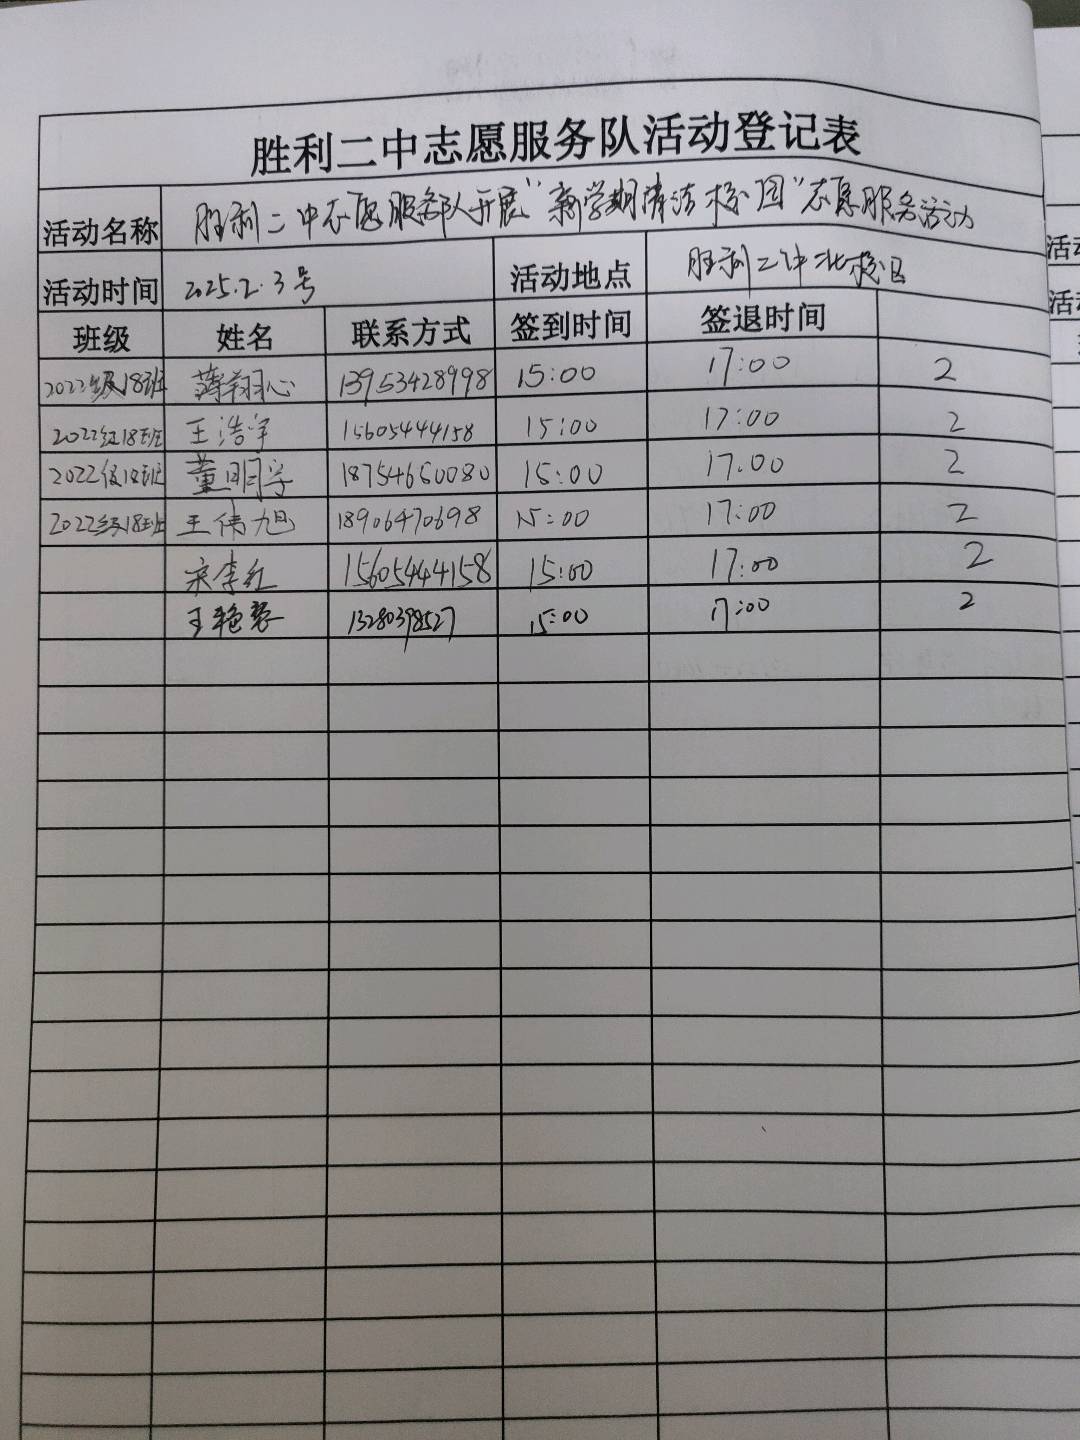 胜利二中志愿服务队活动登记表
活动名称 胜利二中志愿服务队开展"新学期清洁校园"志愿服务活动
活动时间 2025.2.3号 活动地点 胜利二中北校区
班级 姓名 联系方式 签到时间 签退时间
2022级18班 薄翔心 13953428998 15:00 17:00 2
2022级18班 王浩宇 15605444158 15:00 17:00 2
2022级18班 董明宇 18754650080 15:00 17:00 2
2022级18班 王伟旭 18906470698 15:00 17:00 2
宋李红 15605444158 15:00 17:00 2
王艳 13280398527 15:00 17:00 2
活动
活动